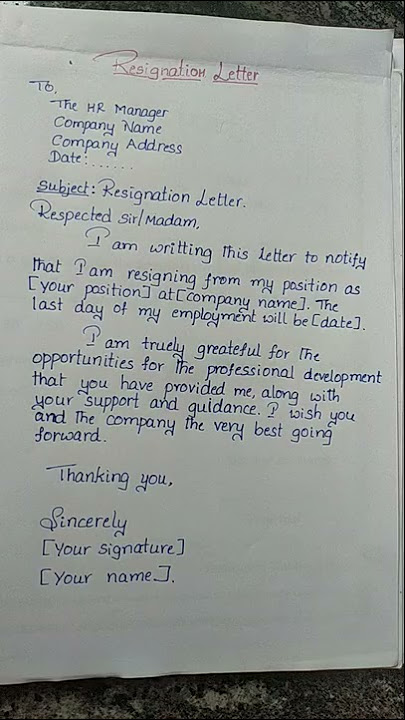 Resignation Letter
To,
The HR Manager
Company Name
Company Address
Date:......
Subject: Resignation Letter.
Respected Sir/Madam,
I am writting this letter to notify
that I am resigning from my position as
[your position] at [company name]. The
last day of my employment will be [date].
I am truely greateful for the
opportunities for the professional development
that you have provided me, along with
your support and guidance. I wish you
and the company the very best going
forward.
Thanking you,
Sincerely
[your signature]
[your name.].